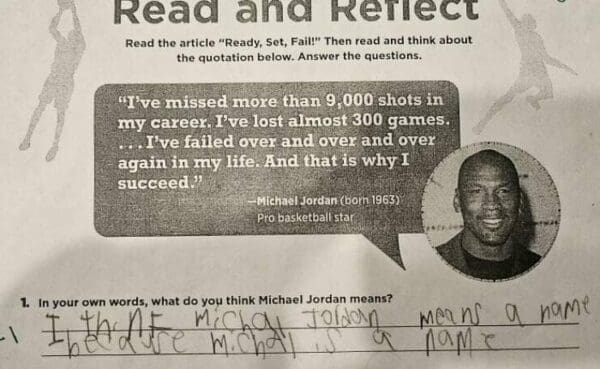 Read and Reflect
Read the article “Ready, Set, Fail!” Then read and think about
the quotation below. Answer the questions.
“I’ve missed more than 9,000 shots in
my career. I’ve lost almost 300 games.
. . . I’ve failed over and over and over
again in my life. And that is why I
succeed.”
—Michael Jordan (born 1963)
Pro basketball star
1. In your own words, what do you think Michael Jordan means?
-1
I thinf Michal Joldan means a name
because michal is a name